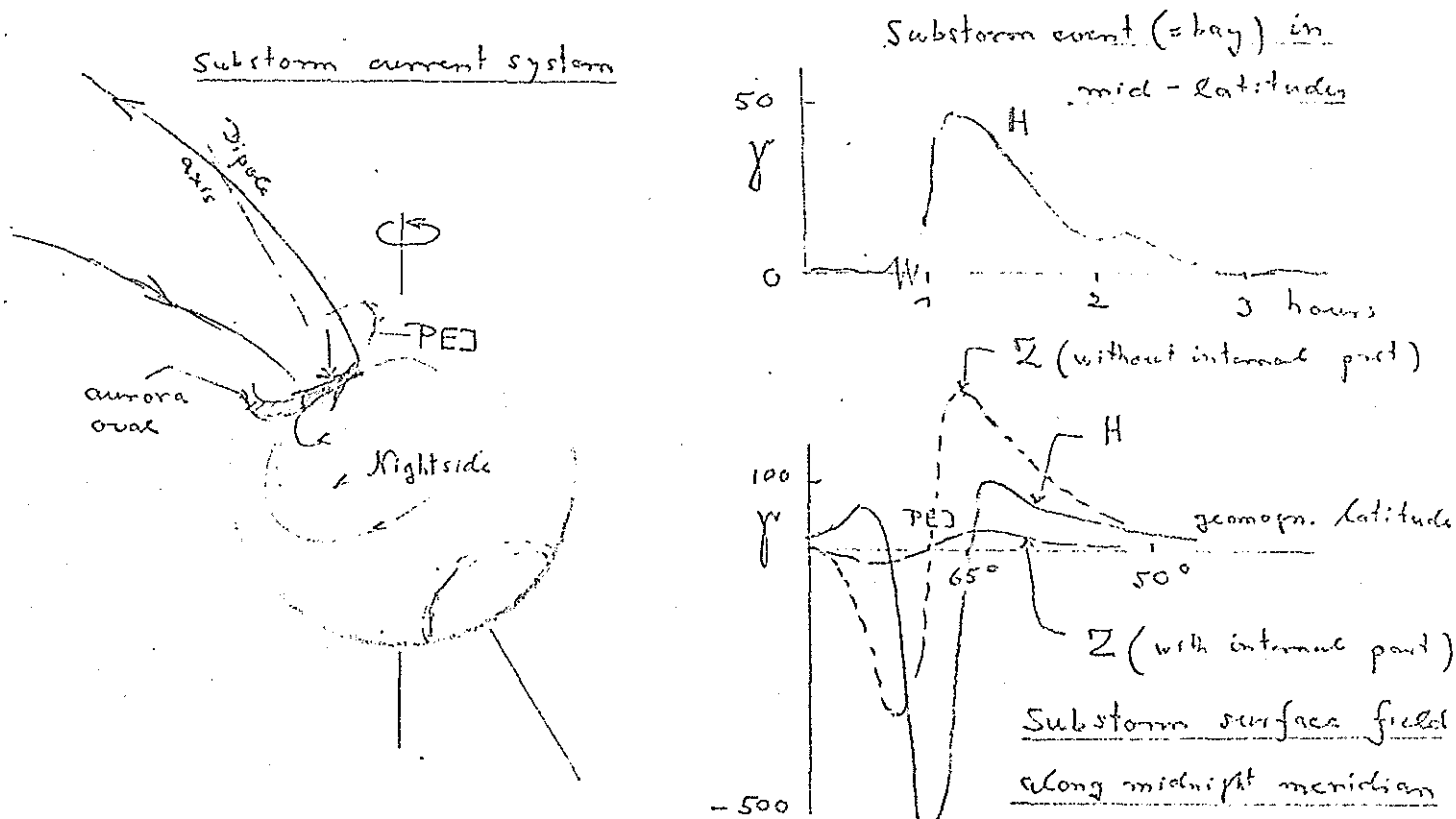 Substorm current system
Dipole
axis
PEJ
aurora
oval
Nightside
Substorm event (= bay) in
mid-latitudes
50
γ
H
0
1
2
3 hours
Z (without internal part)
H
100
γ
PEJ
geomagn. latitude
65°
50°
Z (with internal part)
Substorm surface field
along midnight meridian
-500